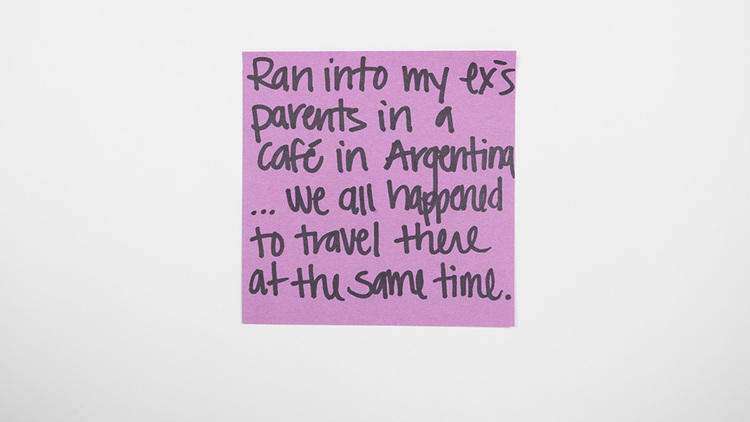 Ran into my ex's
parents in a
café in Argentina
... we all happened
to travel there
at the same time.